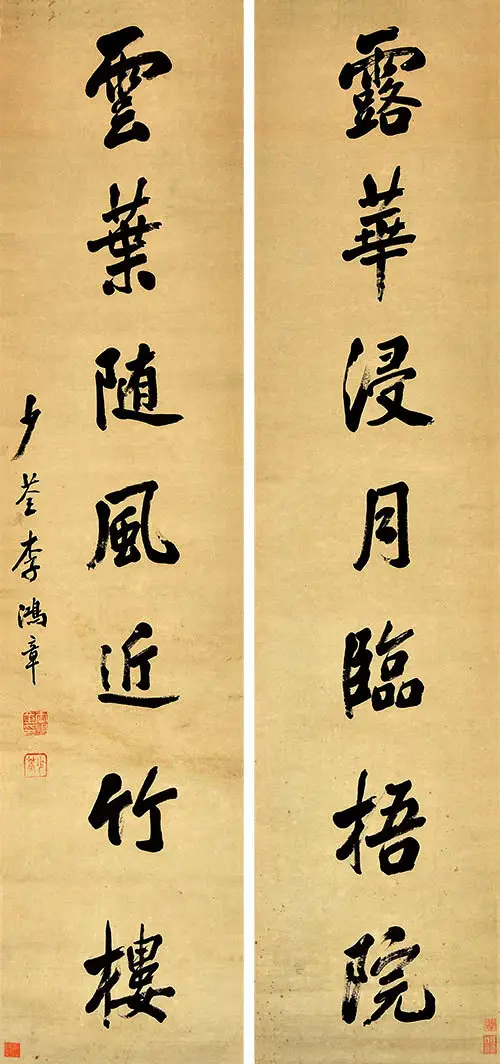 露華浸月臨梧院
雲葉随風近竹樓
少荃李鴻章